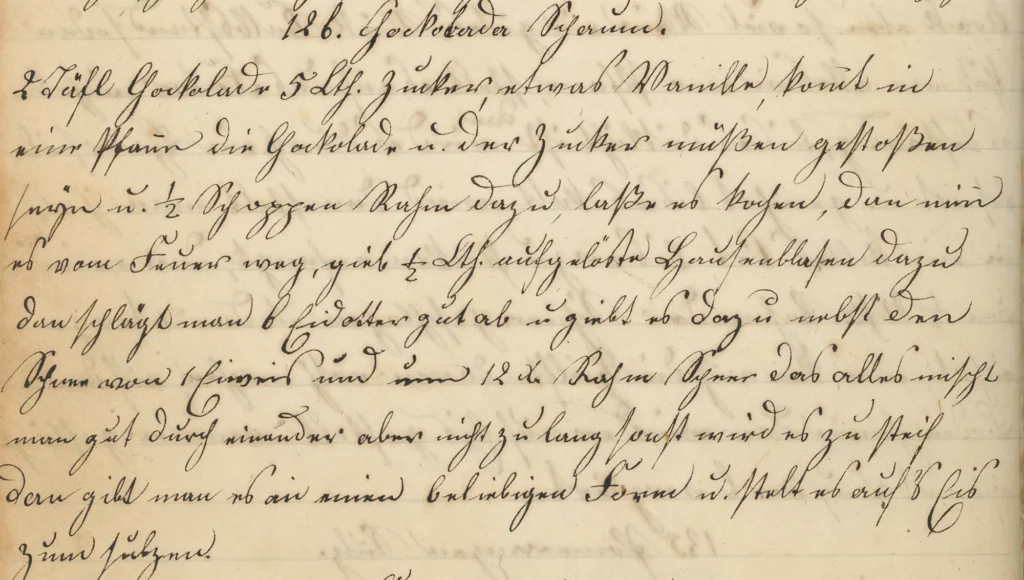 126. Chockolada Schaum.
2 Täfl Chockolade 5 Lth. Zucker, etwas Vanille, kom̄t in
eine Pfan̄e die Chockolade u. der Zucker müßen gestoßen
seyn u. ½ Schoppen Rahm dazu, laße es kochen, dan nim̄
es vom Feuer weg, gieb ½ Lth. aufgelöste Hausenblasen dazu
dan schlägt man 6 Eidotter gut ab u giebt es dazu nebst den
Schnee von 1 Eiweis und um 12 x. Rahm Schnee das alles mischt
man gut durch einander aber nicht zu lang sonst wird es zu steif
dan gibt man es in einen beliebigen Form u. stelt es auf's Eis
zum sulzen.